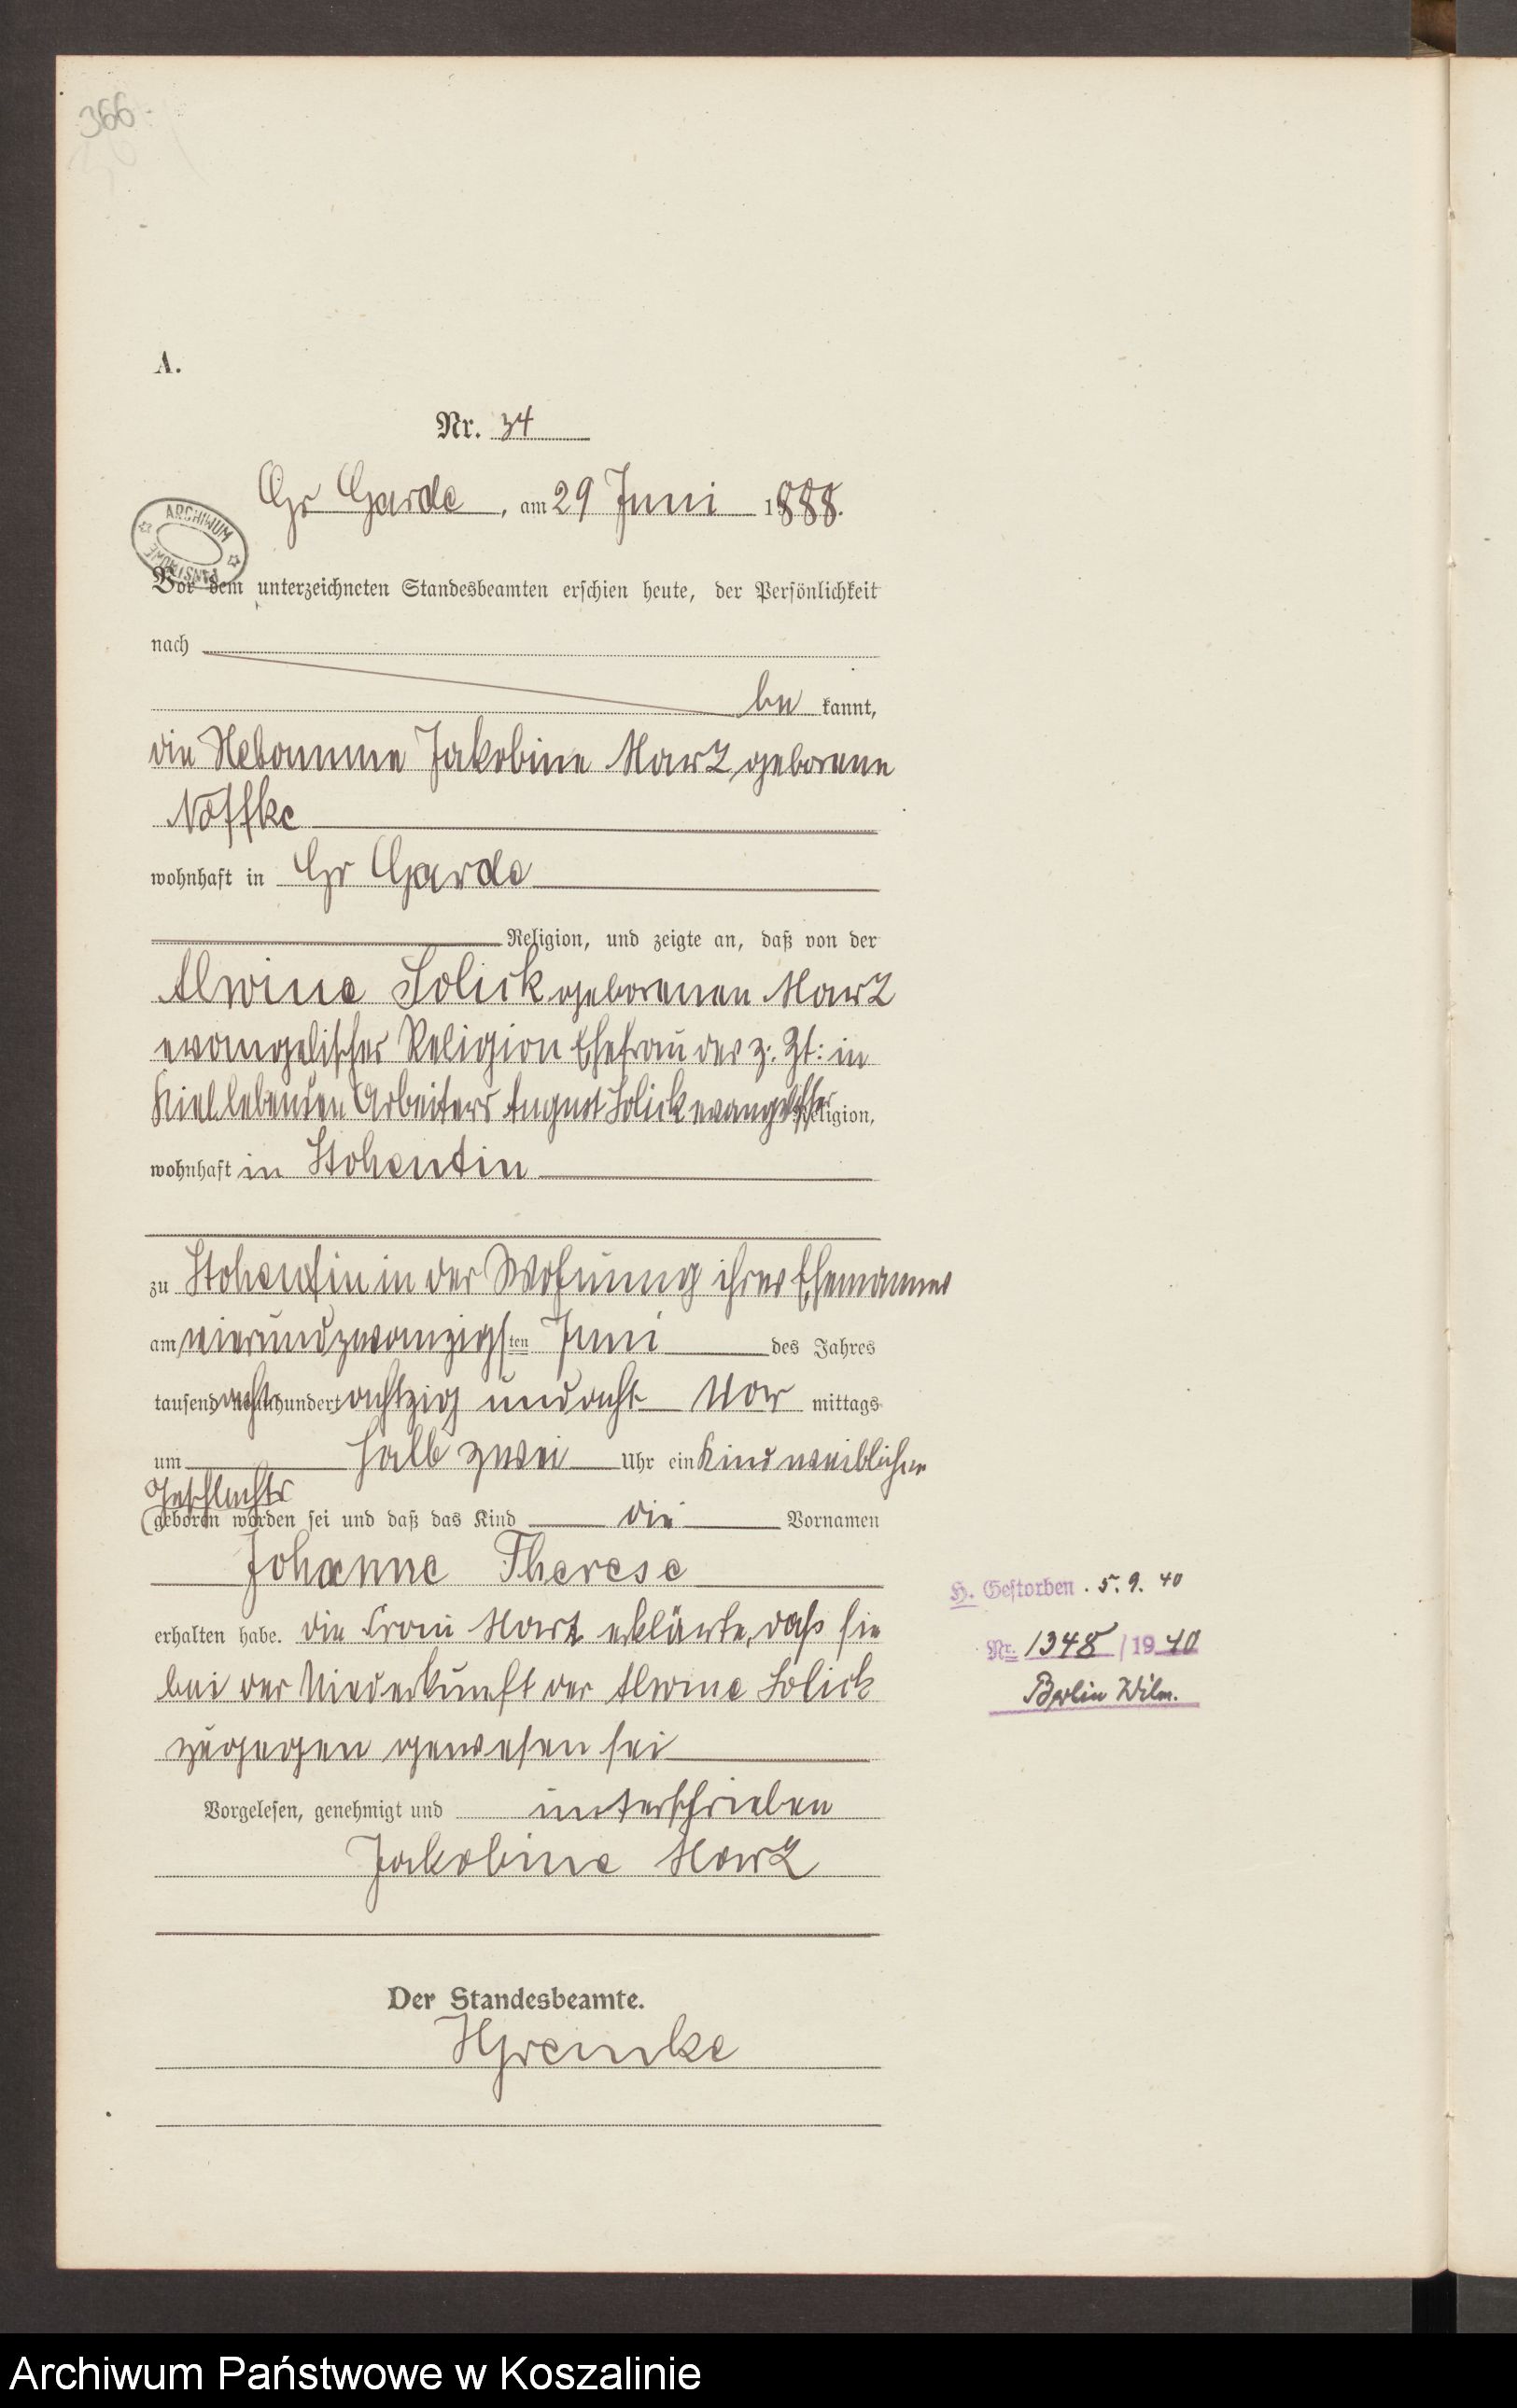 366.
A.
Nr. 34
Gr Garde, am 29 Juni 1888.
ARCHIWUM PAŃSTWOWE
Vor dem unterzeichneten Standesbeamten erschien heute, der Persönlichkeit
nach
be kannt,
die Hebamme Jakobine Marz geborene
Noffke
wohnhaft in Gr Garde
Religion, und zeigte an, daß von der
Alwine Solick geborenen Marz
evangelischer Religion Ehefrau des z. Zt: in
Kiel lebenden Arbeiters August Solick evangelischer Religion,
wohnhaft in Stohentin
zu Stohentin in der Wohnung ihres Ehemannes
am vierundzwanzigsten Juni des Jahres
tausend acht hundert achtzig und acht Vor mittags
um halb zwei Uhr ein Kind weiblichen
Geschlechts
geboren worden sei und daß das Kind die Vornamen
Johanne Therese
erhalten habe. die Frau Marz erklärte, daß sie
bei der Niederkunft der Alwine Solick
zugegen gewesen sei
Vorgelesen, genehmigt und unterschrieben
Jakobine Marz
Der Standesbeamte.
H. Gestorben. 5. 9. 40
Nr. 1348/1940
Berlin Wilm.
Archiwum Państwowe w Koszalinie